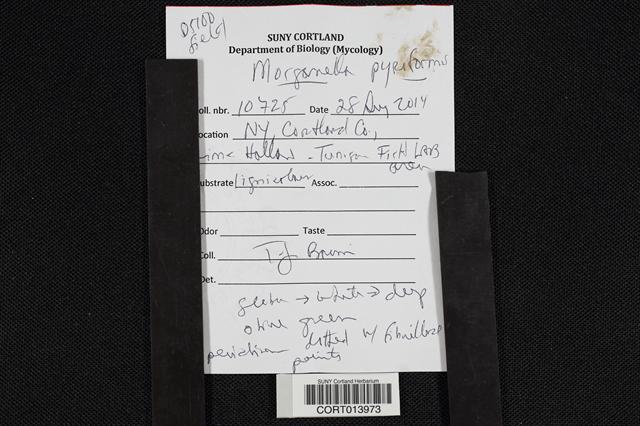 D5100
field
SUNY CORTLAND
Department of Biology (Mycology)
Morganella pyriformis
oll. nbr. 10725 Date 28 Aug 2014
ocation NY, Cortland Co.,
ime Hollow - Tunison Fish Lab
area
ubstrate lignicolous Assoc.
Odor Taste
Coll. TJ Baroni
Det.
gleba → white → deep
olive green
peridium dotted w/ fibrillose
points
SUNY Cortland Herbarium
CORT013973